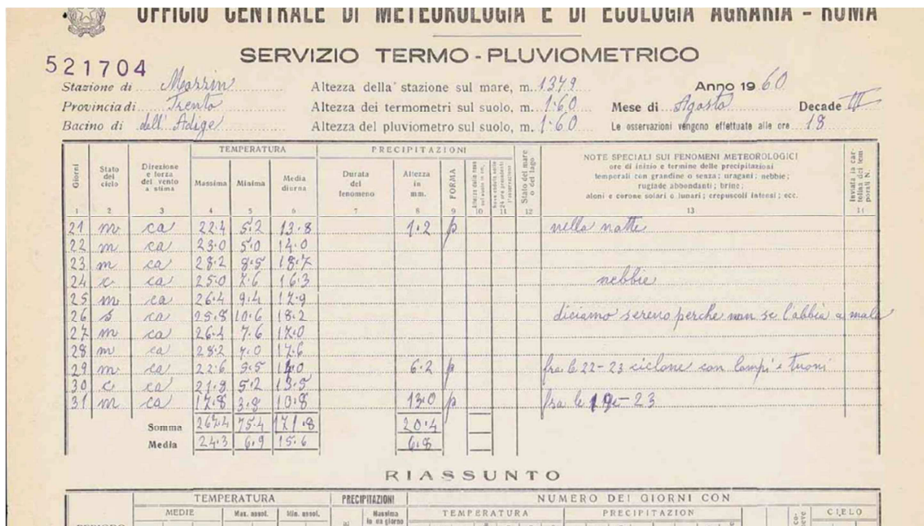 UFFICIO CENTRALE DI METEOROLOGIA E DI ECOLOGIA AGRARIA - ROMA
SERVIZIO TERMO-PLUVIOMETRICO
521704
Stazione di Altezza della stazione sul mare, m. 1379 Anno 1960
Provincia di Trento Altezza dei termometri sul suolo, m. 1.60 Mese di Agosto Decade III
Bacino di dell'Adige Altezza del pluviometro sul suolo, m. 1.60 Le osservazioni vengono effettuate alle ore 18
Giorni Stato del cielo Direzione e forza del vento a stima TEMPERATURA Massima Minima Media diurna PRECIPITAZIONI Durata del fenomeno Altezza in mm. FORMA Stato del mare o del lago NOTE SPECIALI SUI FENOMENI METEOROLOGICI
ore di inizio e termine delle precipitazioni
temporali con grandine o senza; uragani; nebbie;
rugiade abbondanti; brine;
aloni e corone solari o lunari; crepuscoli intensi; ecc.
1 2 3 4 5 6 7 8 9 10 11 12 13 14
21 m ca 22.4 5.2 13.8 1.2 p nella notte
22 m ca 23.0 5.0 14.0
23 m ca 28.2 18.7
24 c ca 25.0 7.6 16.3 nebbie
25 m ca 26.4 9.4 17.9
26 s ca 25.8 10.6 18.2 diciamo sereno perche non se l'abbia a male
27 m ca 26.4 7.6 17.0
28 m ca 28.2 7.0 17.6
29 m ca 22.6 5.5 14.0 6.2 p fra le 22-23 ciclone con lampi e tuoni
30 c ca 21.8 5.2 13.5
31 m ca 17.8 3.8 10.8 13.0 p fra le 19-23
Somma 267.4 75.4 171.8 20.4
Media 24.3 6.9 15.6 6.8
RIASSUNTO
TEMPERATURA PRECIPITAZIONI NUMERO DEI GIORNI CON
MEDIE Mas. assol. Min. assol. Massima in un giorno TEMPERATURA PRECIPITAZION CIELO